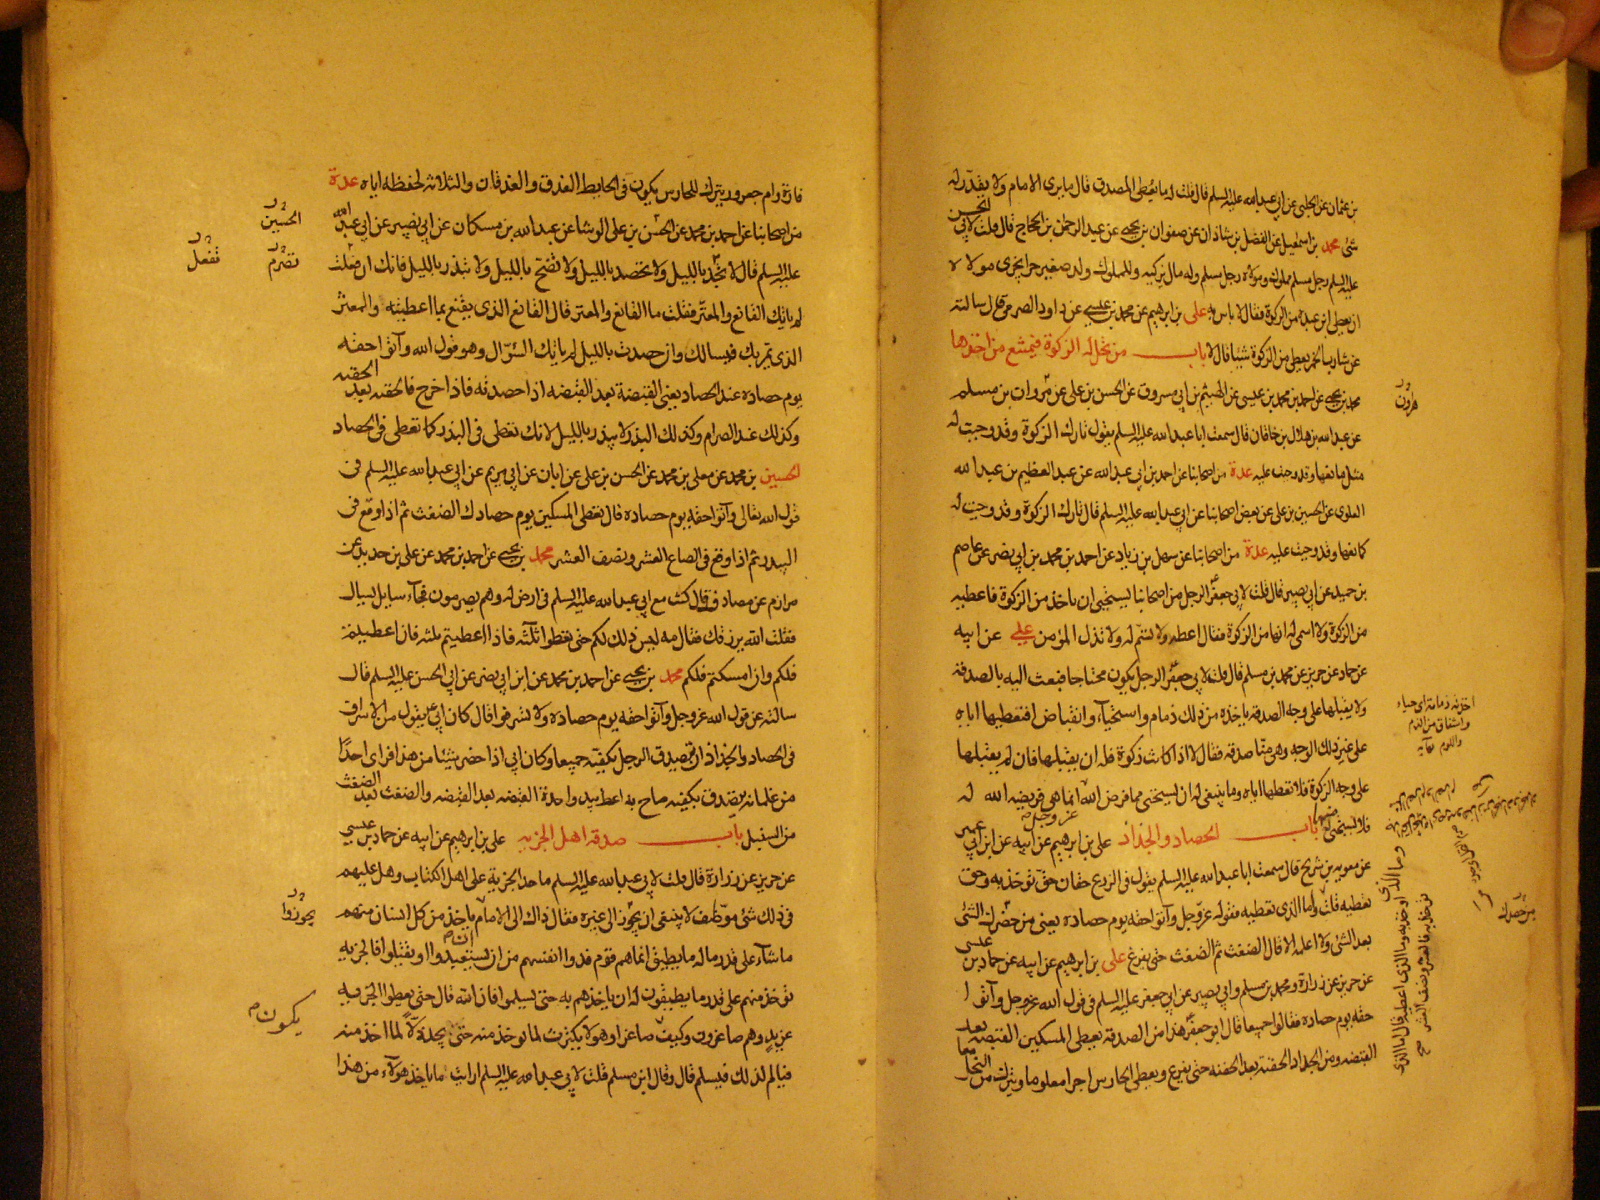 بن عثمان عن الحلبي عن ابي عبدالله عليه السلم قال قلت له ما يعطى المصدق قال ما يرى الامام ولا يقدر له
شئ محمد بن اسمعيل عن الفضل بن شاذان عن صفوان بن يحيى عن عبد الرحمن بن الحجاج قال قلت لابي الحسن
عليه السلم رجل مسلم مملوك ومولاه رجل مسلم وله مال يزكيه وللمملوك ولد صغير حر ايجزى مولاه
ان يعطى ابن عبده من الزكوة فقال لا باس به على بن ابرهيم عن محمد بن عيسى عن داود الصرمي قال سالته
عن شارب الخمر يعطى من الزكوة شيئا قال لا باب من تحل له الزكوة فيمتنع من اخذها
محمد بن يحيى عن احمد بن محمد بن عيسى عن الهيثم بن ابي مسروق عن الحسن بن على عن مروان بن مسلم
هرون
عن عبدالله بن هلال بن خاقان قال سمعت ابا عبدالله عليه السلم يقول تارك الزكوة وقد وجبت له
مثل مانعها وقد وجبت عليه عدة من اصحابنا عن احمد بن ابي عبد الله عن عبد العظيم بن عبد الله
العلوى عن الحسين بن على عن بعض اصحابنا عن ابي عبدالله عليه السلم قال تارك الزكوة وقد وجبت له
كمانعها وقد وجبت عليه عدة من اصحابنا عن سهل بن زياد عن احمد بن محمد بن ابي نصر عن عاصم
بن حميد عن ابي بصير قال قلت لابي جعفر الرجل من اصحابنا يستحيى ان ياخذ من الزكوة فاعطيه
من الزكوة ولا اسمى له انها من الزكوة فقال اعطه ولا تسم له ولا تذل المؤمن على عن ابيه
عن حماد عن حريز عن محمد بن مسلم قال قلت لابي جعفر الرجل يكون محتاجا فنبعث اليه بالصدقة
ولا يقبلها على وجه الصدقة ياخذه من ذلك ذمام واستحياء وانقباض افنعطيها اياه
على غير ذلك الوجه وهي منا صدقة فقال لا اذا كانت زكوة فله ان يقبلها فان لم يقبلها
على وجه الزكوة فلا تعطها اياه وما ينبغي له ان يستحيى مما فرض الله انما هي فريضة الله له
فلا يستحيى منها باب الحصاد والجذاذ على بن ابرهيم عن ابيه عن ابن ابي عمير
عز وجل
عن معوية بن شريح قال سمعت ابا عبدالله عليه السلم يقول في الزرع حقان حق تؤخذ به وحق
تعطيه قلت واما الذى تعطيه فقوله عز وجل وآتوا حقه يوم حصاده يعنى من حضرك الشئ
بعد الشئ ولا اعلمه الا قال الضغث ثم الضغث حتى يفرغ على بن ابرهيم عن ابيه عن حماد بن عيسى
عن حريز عن زرارة ومحمد بن مسلم وابي بصير عن ابي جعفر عليه السلم في قول الله عز وجل وآتوا
حقه يوم حصاده فقالوا جميعا قال ابو جعفر هذا من الصدقة يعطى المسكين القبضه بعد
القبضه ومن الجذاذ الحفنه بعد الحفنه حتى يفرغ ويعطى الحارس اجرا معلوما ويترك من النخل معا
اخذته ذمامة اى حياء
واشفاق من الذم
واللوم
من حصدك
فارة وام جعرور ويترك للحارس يكون في الحايط العذق والعذقان والثلاثة لحفظه اياه عدة
من اصحابنا عن احمد بن محمد عن الحسن بن على الوشا عن عبد الله بن مسكان عن ابي بصير عن ابي عبدالله
الحسين
عليه السلم قال لا تجذ بالليل ولا تحصد بالليل ولا تضح بالليل ولا تبذر بالليل فانك ان فعلت
تصرم تفعل
لم ياتك القانع والمعتر فقلت ما القانع والمعتر قال القانع الذى يقنع بما اعطيته والمعتر
الذى يمر بك فيسالك وان حصدت بالليل لم ياتك السؤال وهو قول الله وآتوا حقه
يوم حصاده عند الحصاد يعنى القبضة بعد القبضه اذا حصدته فاذا خرج فالحفنه بعد الحفنه
وكذلك عند الصرام وكذلك البذر لا يبذر بالليل لانك تعطى في البذر كما تعطى في الحصاد
الحسين بن محمد عن معلى بن محمد عن الحسن بن على عن ابان عن ابي مريم عن ابي عبدالله عليه السلم في
قول الله تعالى وآتوا حقه يوم حصاده قال تعطى المسكين يوم حصادك الضغث ثم اذا وقع في
البيدر ثم اذا وقع في الصاع العشر ونصف العشر محمد بن يحيى عن احمد بن محمد عن على بن حديد عن
مرازم عن مصادف قال كنت مع ابي عبدالله عليه السلم في ارض له وهم يصرمون فجاء سايل يسال
فقلت الله يرزقك فقال مه ليس ذلك لكم حتى تعطوا ثلثة فاذا اعطيتم ثلثه فان اعطيتم
فلكم وان امسكتم فلكم محمد بن يحيى عن احمد بن محمد عن ابن ابي نصر عن ابي الحسن عليه السلم قال
سالته عن قول الله عز وجل وآتوا حقه يوم حصاده ولا تسرفوا قال كان ابي يقول من الاسراف
في الحصاد والجذاذ ان يصدق الرجل بكفيه جميعا وكان ابي اذا حضر شيئا من هذا فراى احدا
من غلمانه يتصدق بكفيه صاح به اعط بيد واحدة القبضه بعد القبضه والضغث بعد الضغث
من السنبل باب صدقة اهل الجزيه على بن ابرهيم عن ابيه عن حماد بن عيسى
عن حريز عن زرارة قال قلت لابي عبدالله عليه السلم ما حد الجزية على اهل الكتاب وهل عليهم
في ذلك شئ موظف لا ينبغى ان يجوز الى غيره فقال ذاك الى الامام ياخذ من كل انسان منهم
يجوزوا
ما شاء على قدر ماله ما يطيق انما هم قوم فدوا انفسهم من ان يستعبدوا او يقتلوا فالجزيه
تؤخذ منهم على قدر ما يطيقون له ان ياخذهم به حتى يسلموا فان الله قال حتى يعطوا الجزيه
يكون
عن يد وهم صاغرون وكيف صاغرا وهو لا يكترث لما يؤخذ منه حتى يجد ذلا لما اخذ منه
فيالم لذلك فيسلم قال وقال ابن مسلم قلت لابي عبدالله عليه السلم ارايت ما ياخذ هؤلاء من هذا